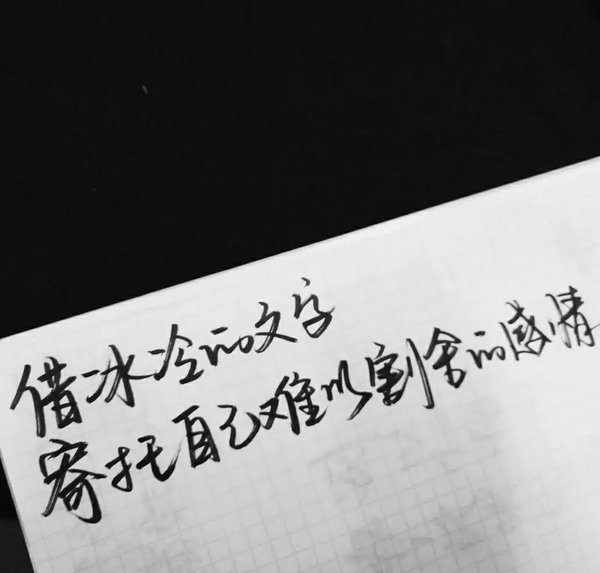 借冰冷的文字
寄托自己难以割舍的感情